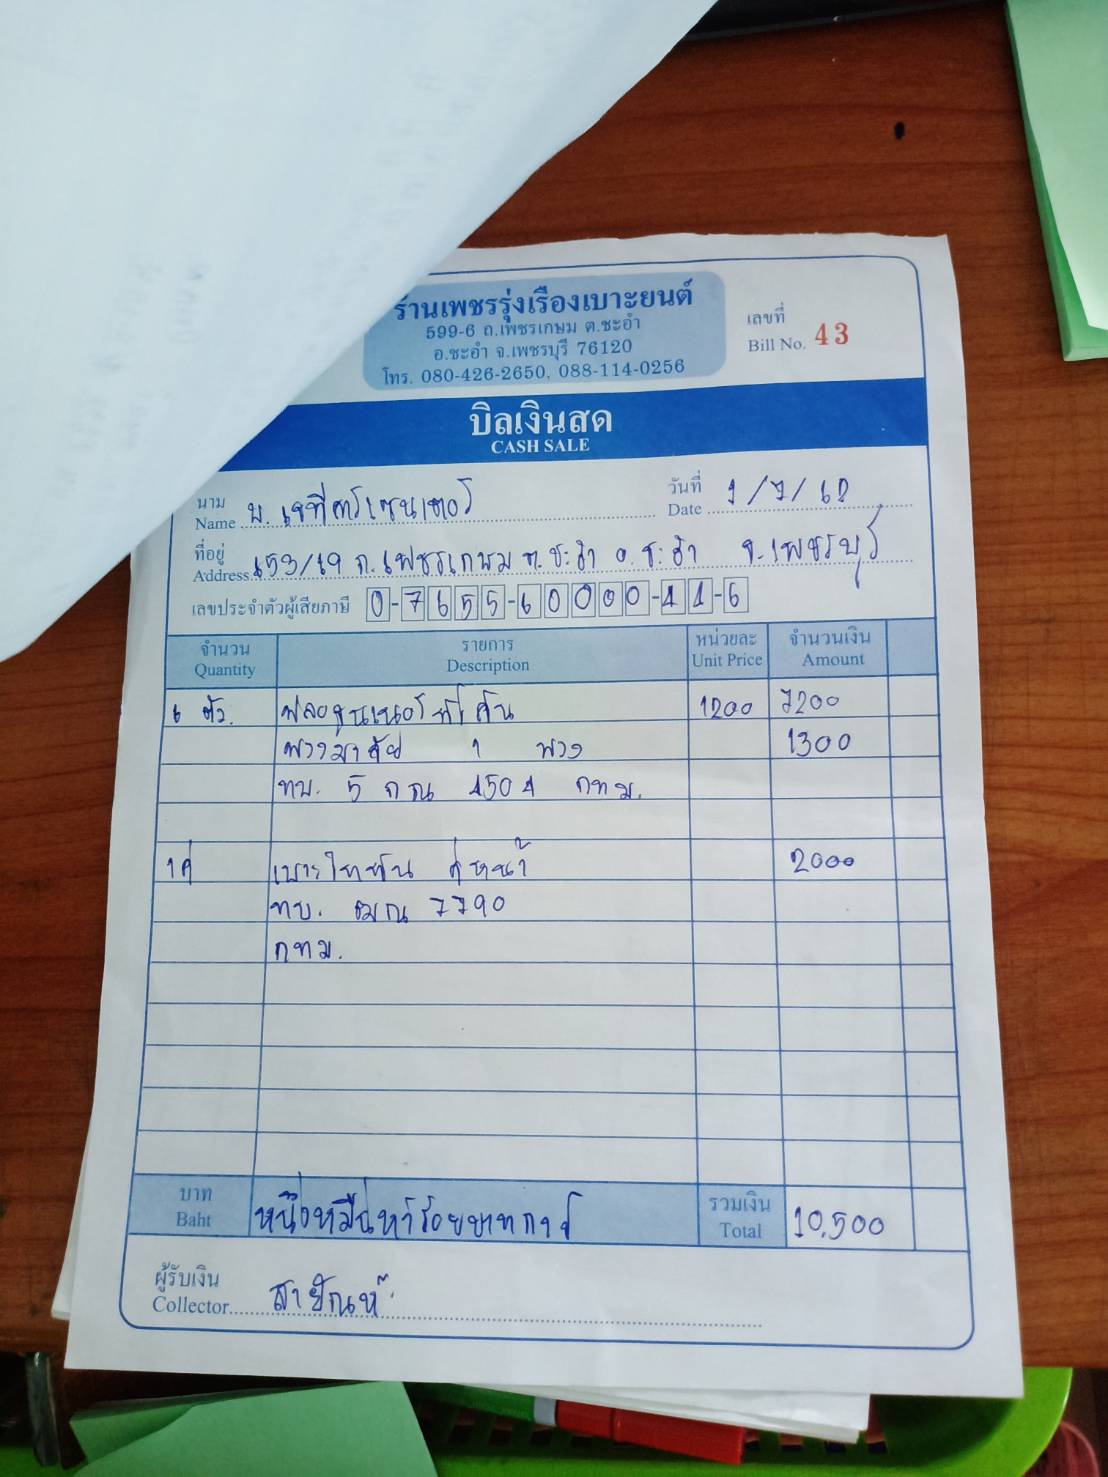 ร้านเพชรรุ่งเรืองเบาะยนต์
599-6 ถ.เพชรเกษม ต.ชะอำ
อ.ชะอำ จ.เพชรบุรี 76120
โทร. 080-426-2650, 088-114-0256
เลขที่
Bill No. 43
บิลเงินสด
CASH SALE
นาม
Name บ. เจทีคาร์เซนเตอร์
วันที่
Date 1/7/68
ที่อยู่
Address 653/19 ถ.เพชรเกษม ต.ชะอำ อ.ชะอำ จ.เพชรบุรี
เลขประจำตัวผู้เสียภาษี 0-7655-60000-11-6
จำนวน รายการ หน่วยละ จำนวนเงิน
Quantity Description Unit Price Amount
6 ตัว. 1200 7200
พวงมาลัย 1 พวง 1300
ทบ. 5 กณ 4504 กทม.
1คู่ เบาะ คู่หน้า 2000
ทบ. ฒณ 7790
กทม.
บาท
Baht หนึ่งหมื่นห้าร้อยบาทถ้วน
รวมเงิน
Total 10,500
ผู้รับเงิน
Collector สายัณห์